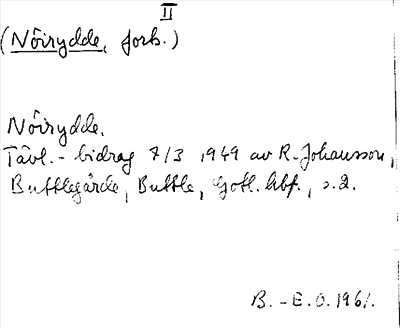 II
(Nöirydde, forts.)
Nöirydde.
Tävl.-bidrag 7/3 1949 av R. Johansson,
Buttlegårde, Buttle, Gotl. Abf., s. 2.
B.-E.O. 1961.